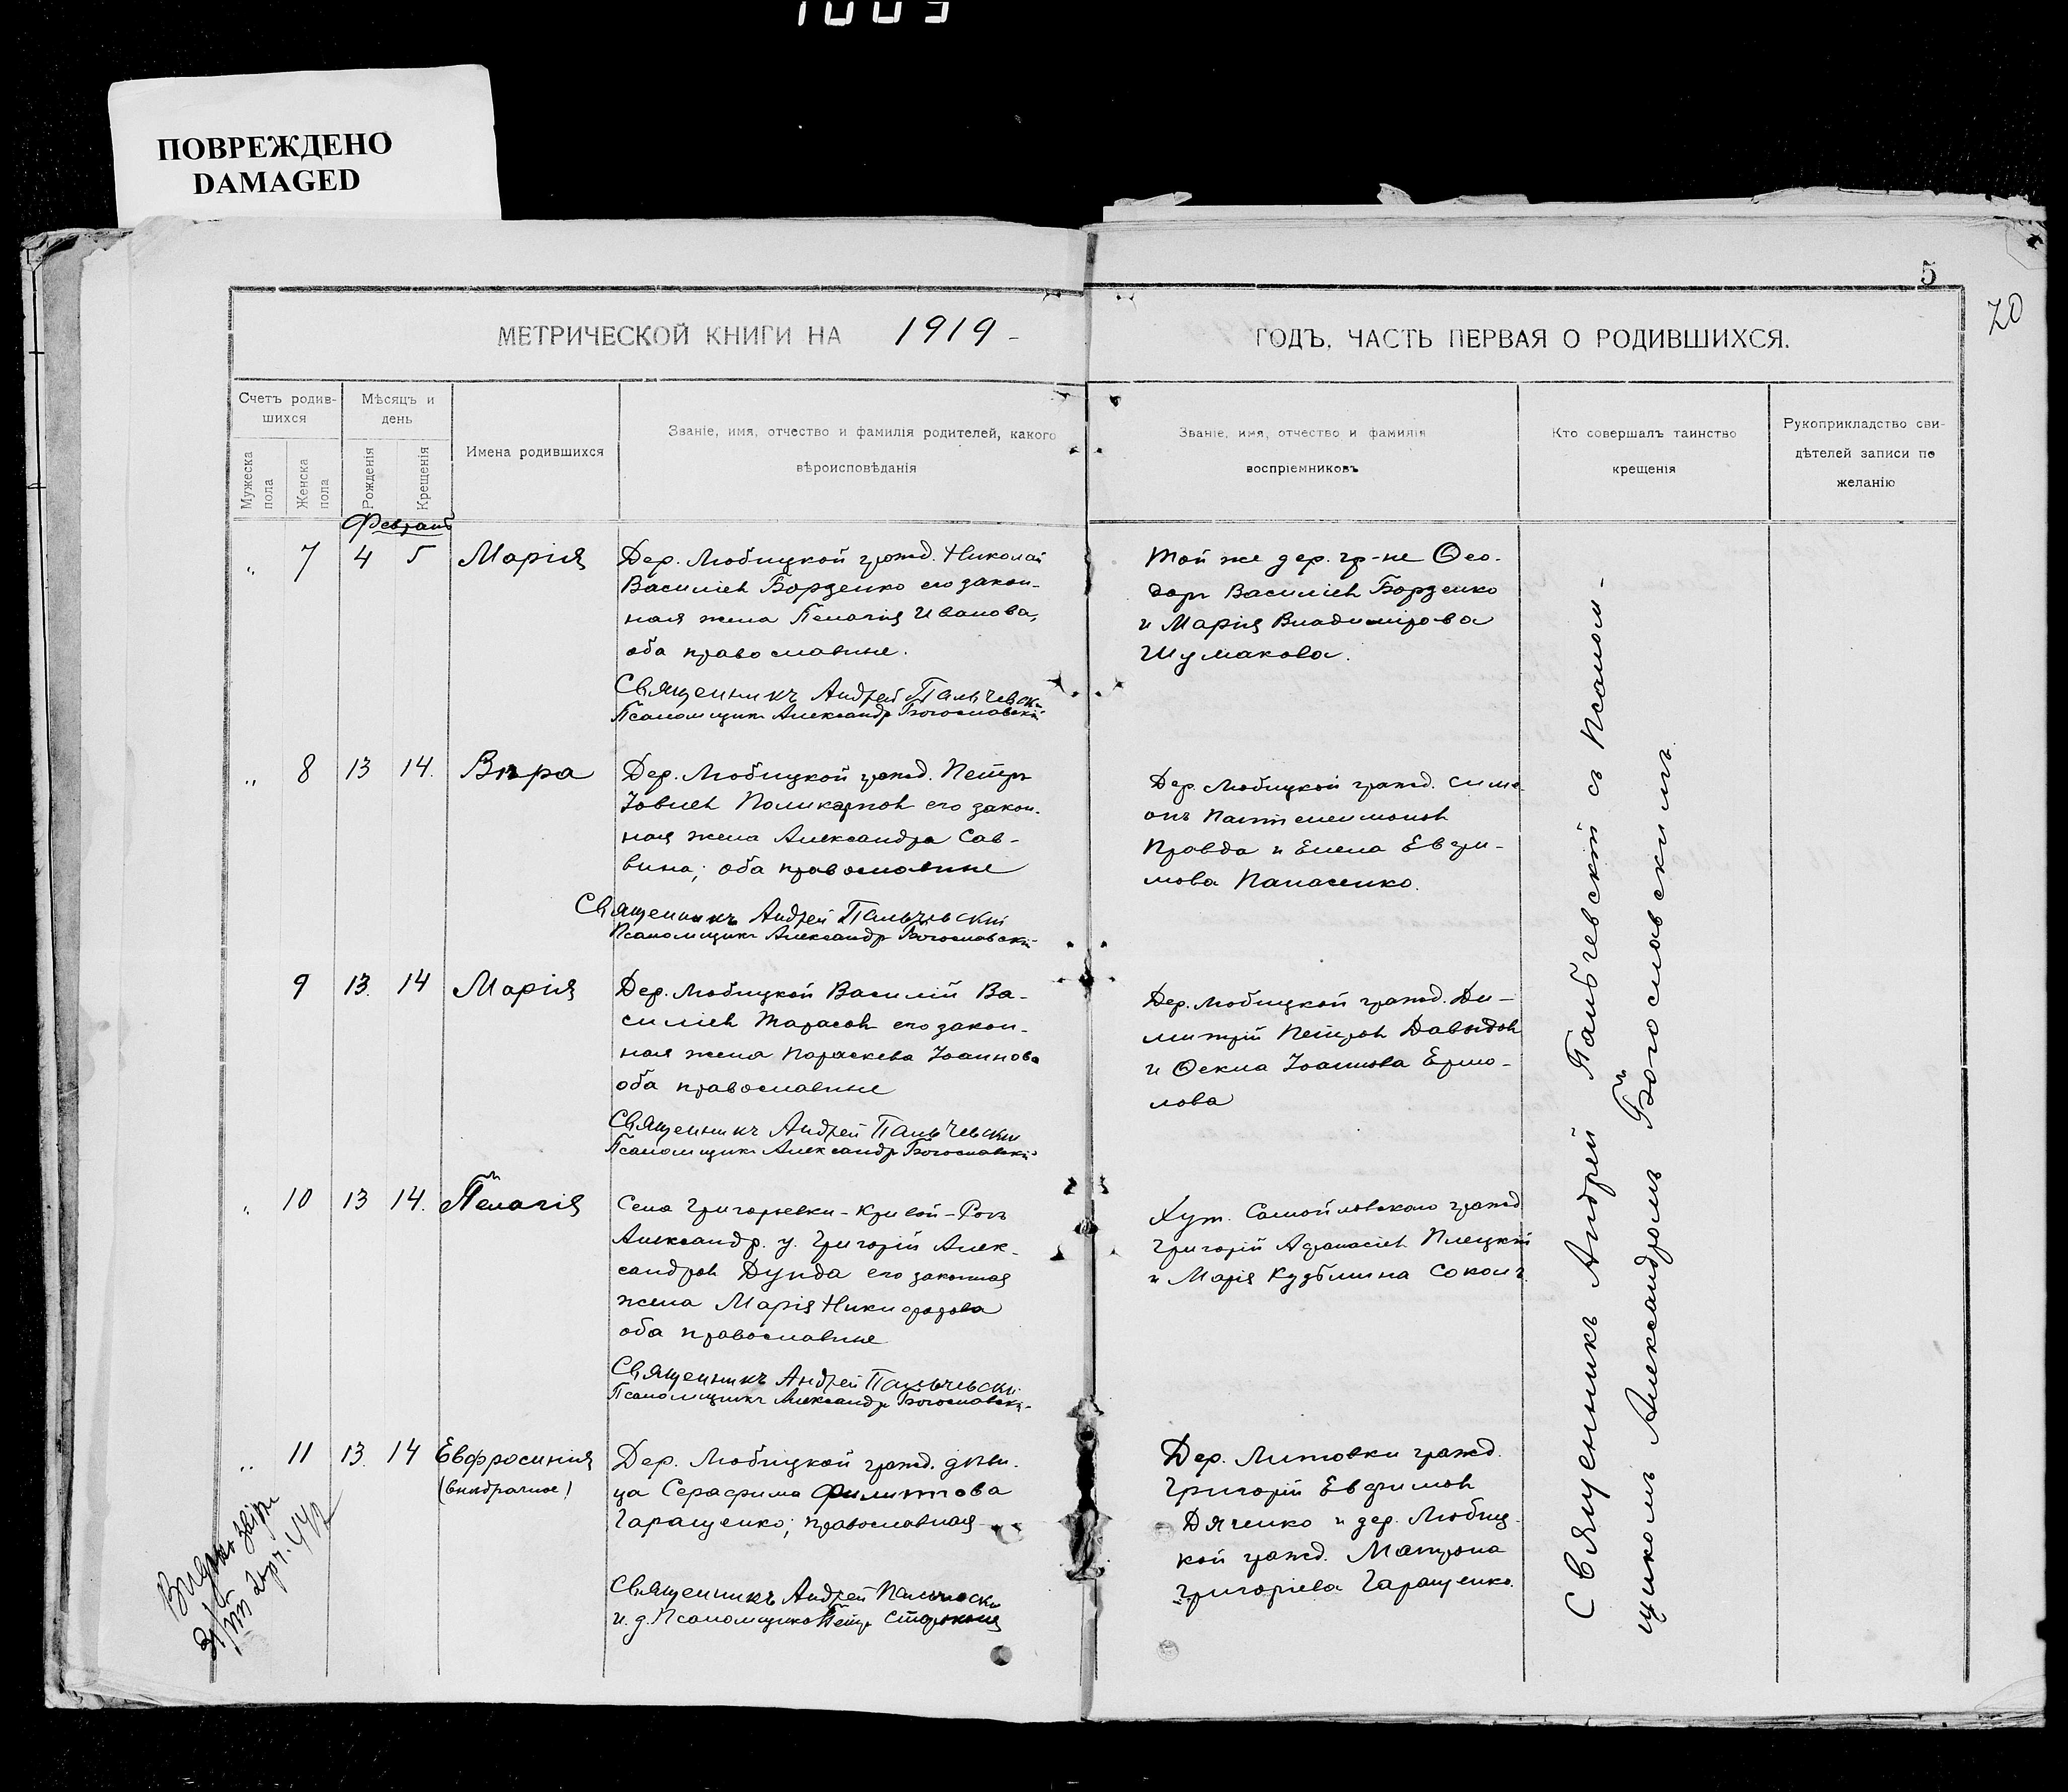 1003
ПОВРЕЖДЕНО
DAMAGED
5
20
МЕТРИЧЕСКОЙ КНИГИ НА 1919 -
ГОДЪ, ЧАСТЬ ПЕРВАЯ О РОДИВШИХСЯ.
Счетъ родив-
шихся
Мужеска
пола
Женска
пола
Мѣсяцъ и
день
Рожденія
Крещенія
Имена родившихся
Званіе, имя, отчество и фамилія родителей, какого
вѣроисповѣданія
Званіе, имя, отчество и фамилія
воспріемниковъ
Кто совершалъ таинство
крещенія
Рукоприкладство сви-
дѣтелей записи по
желанію
Февраль
„ 7 4 5 Марія
Дер. Любицкой гражд. Николай
Василіев Борзенко его закон-
ная жена Пелагія Иванова,
оба православные.
Священникъ Андрей Пальчевскі
Псаломщикъ Александръ Богословскій
Той же дер. гр-не Ѳео-
доръ Василіев Борзенко
и Марія Владимірова
Шумакова.
„ 8 13 14. Вѣра
Дер. Любицкой гражд. Петръ
Іовлев Поликарпов его закон-
ная жена Александра Сав-
вина; оба православные
Священникъ Андрей Пальчевскій
Псаломщикъ Александръ Богословскій
Дер. Любицкой гражд. Симе-
онъ Пантелеимонов
Правда и Елена Евфи-
мова Панасенко.
9 13. 14 Марія
Дер. Любицкой Василій Ва-
силіев Тарасов его закон-
ная жена Параскева Іоаннова
оба православные
Священникъ Андрей Пальчевскій
Псаломщикъ Александръ Богословскій
Дер. Любицкой гражд. Ди-
митрій Петров Давыдов
и Ѳекла Іоаннова Ермо-
лова
„ 10 13 14. Пелагія
Села Григорьевки-Кривой-Рогъ
Александр. у. Григорій Алек-
сандров Дунда его законная
жена Марія Никифорова
оба православные
Священникъ Андрей Пальчевскій
Псаломщикъ Александръ Богословскій
Хут. Самойловского гражд.
Григорій Афанасіев Плецкій
и Марія Кузьмина Соколъ.
„ 11 13. 14 Евфросинія
(внѣбрачное)
Дер. Любицкой гражд. дѣви-
ца Серафима Филиппова
Гаращенко; православная
Священникъ Андрей Пальчевскі
и. д. Псаломщика Петр
Дер. Литовки гражд.
Григорій Евфимов
Дяченко и дер. Любиц-
кой гражд. Матрона
Григоріева Гаращенко.
Священникъ Андрей Пальчевскій съ Псалом-
щикомъ Александромъ Богословскимъ